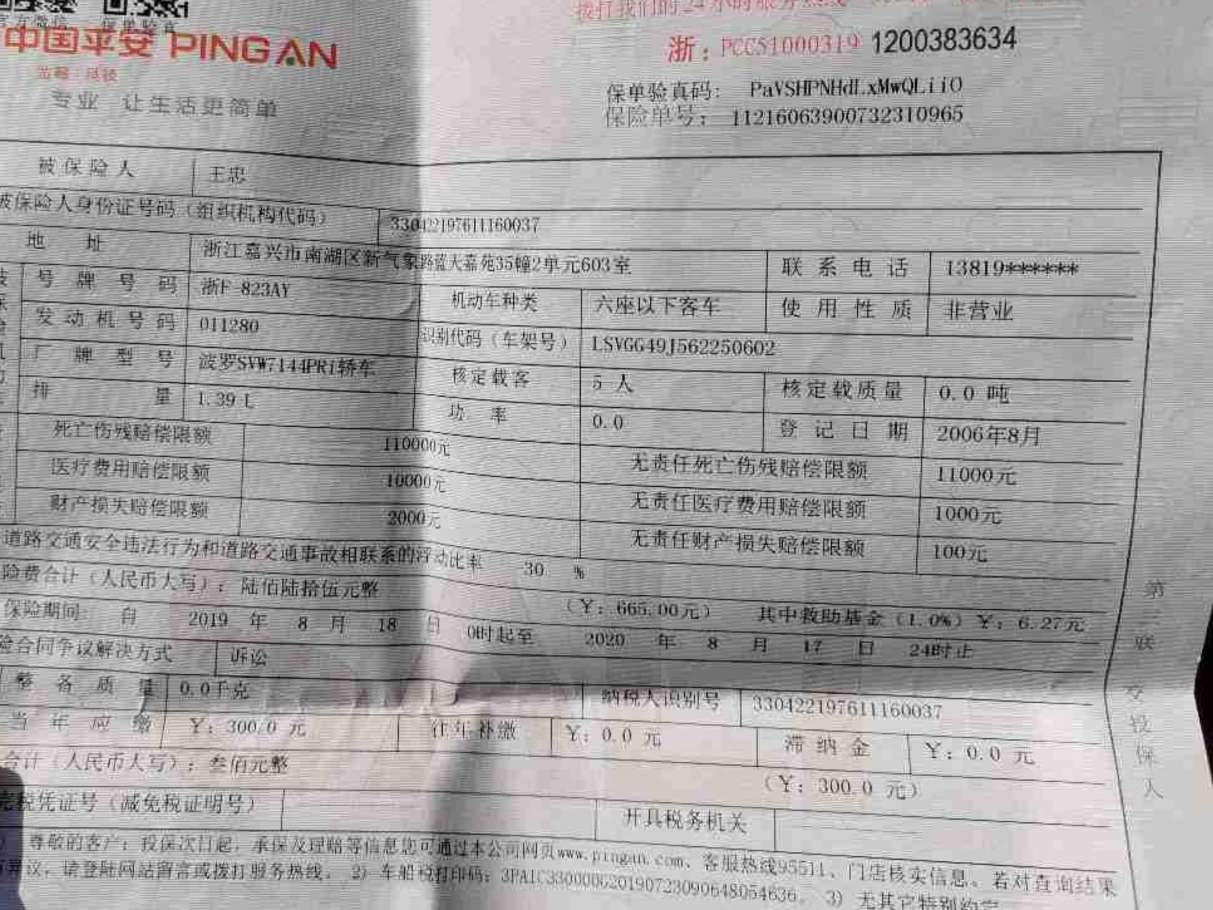 官方微信 保单验真
拨打我们的24小时服务热线
中国平安 PING AN
金融·科技
专业 让生活更简单
浙：PCC51000319 1200383634
保单验真码： PaVSHPNHdLxMwQLiiO
保险单号： 11216063900732310965
被保险人 王忠
被保险人身份证号码（组织机构代码） 330422197611160037
地址 浙江嘉兴市南湖区新气象路蓝天嘉苑35幢2单元603室 联系电话 13819******
号牌号码 浙F-823AY 机动车种类 六座以下客车 使用性质 非营业
发动机号码 011280 识别代码（车架号） LSVGG49J562250602
厂牌型号 波罗SVW7144PRi轿车 核定载客 5 人 核定载质量 0.0 吨
排量 1.39 L 功率 0.0 登记日期 2006年8月
死亡伤残赔偿限额 110000元 无责任死亡伤残赔偿限额 11000元
医疗费用赔偿限额 10000元 无责任医疗费用赔偿限额 1000元
财产损失赔偿限额 2000元 无责任财产损失赔偿限额 100元
道路交通安全违法行为和道路交通事故相联系的浮动比率 30 %
险费合计（人民币大写）：陆佰陆拾伍元整 （￥：665.00元） 其中救助基金（1.0%）￥：6.27元
保险期间 自 2019 年 8 月 18 日 0时起至 2020 年 8 月 17 日 24时止
险合同争议解决方式 诉讼
整备质量 0.0千克 纳税人识别号 330422197611160037
当年应缴 ￥：300.0 元 往年补缴 ￥：0.0 元 滞纳金 ￥：0.0 元
合计（人民币大写）：叁佰元整 （￥：300.0 元）
完税凭证号（减免税证明号） 开具税务机关
尊敬的客户：投保次日起，承保及理赔等信息您可通过本公司网页www.pingan.com、客服热线95511、门店核实信息。若对查询结果
有异议，请登陆网站留言或拨打服务热线。 2) 车船税打印码：3PAIC330000620190723090648054636。 3) 无其它特别约定
第三联 交投保人